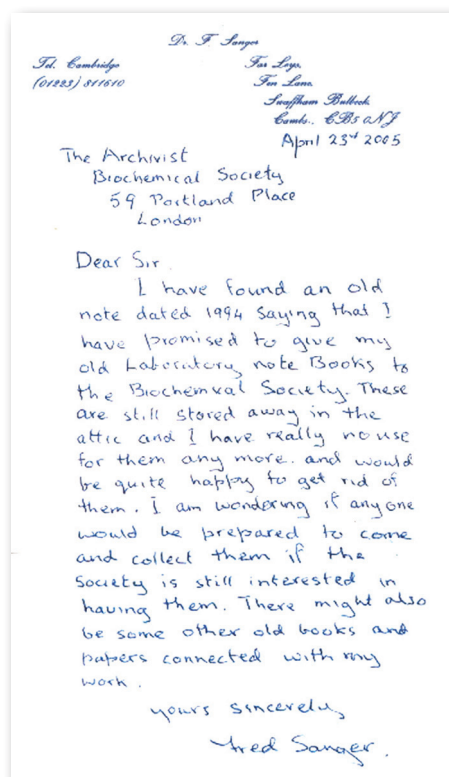 Dr. F. Sanger
Tel. Cambridge
(01223) 811610
Far Leys,
Fen Lane,
Swaffham Bulbeck,
Cambs., CB5 0NJ
April 23rd 2005
The Archivist
Biochemical Society
59 Portland Place
London
Dear Sir.
I have found an old
note dated 1994 saying that I
have promised to give my
old Laboratory note Books to
the Biochemical Society. These
are still stored away in the
attic and I have really no use
for them any more. and would
be quite happy to get rid of
them. I am wondering if anyone
would be prepared to come
and collect them if the
Society is still interested in
having them. There might also
be some other old books and
papers connected with my
work.
yours sincerely,
Fred Sanger.